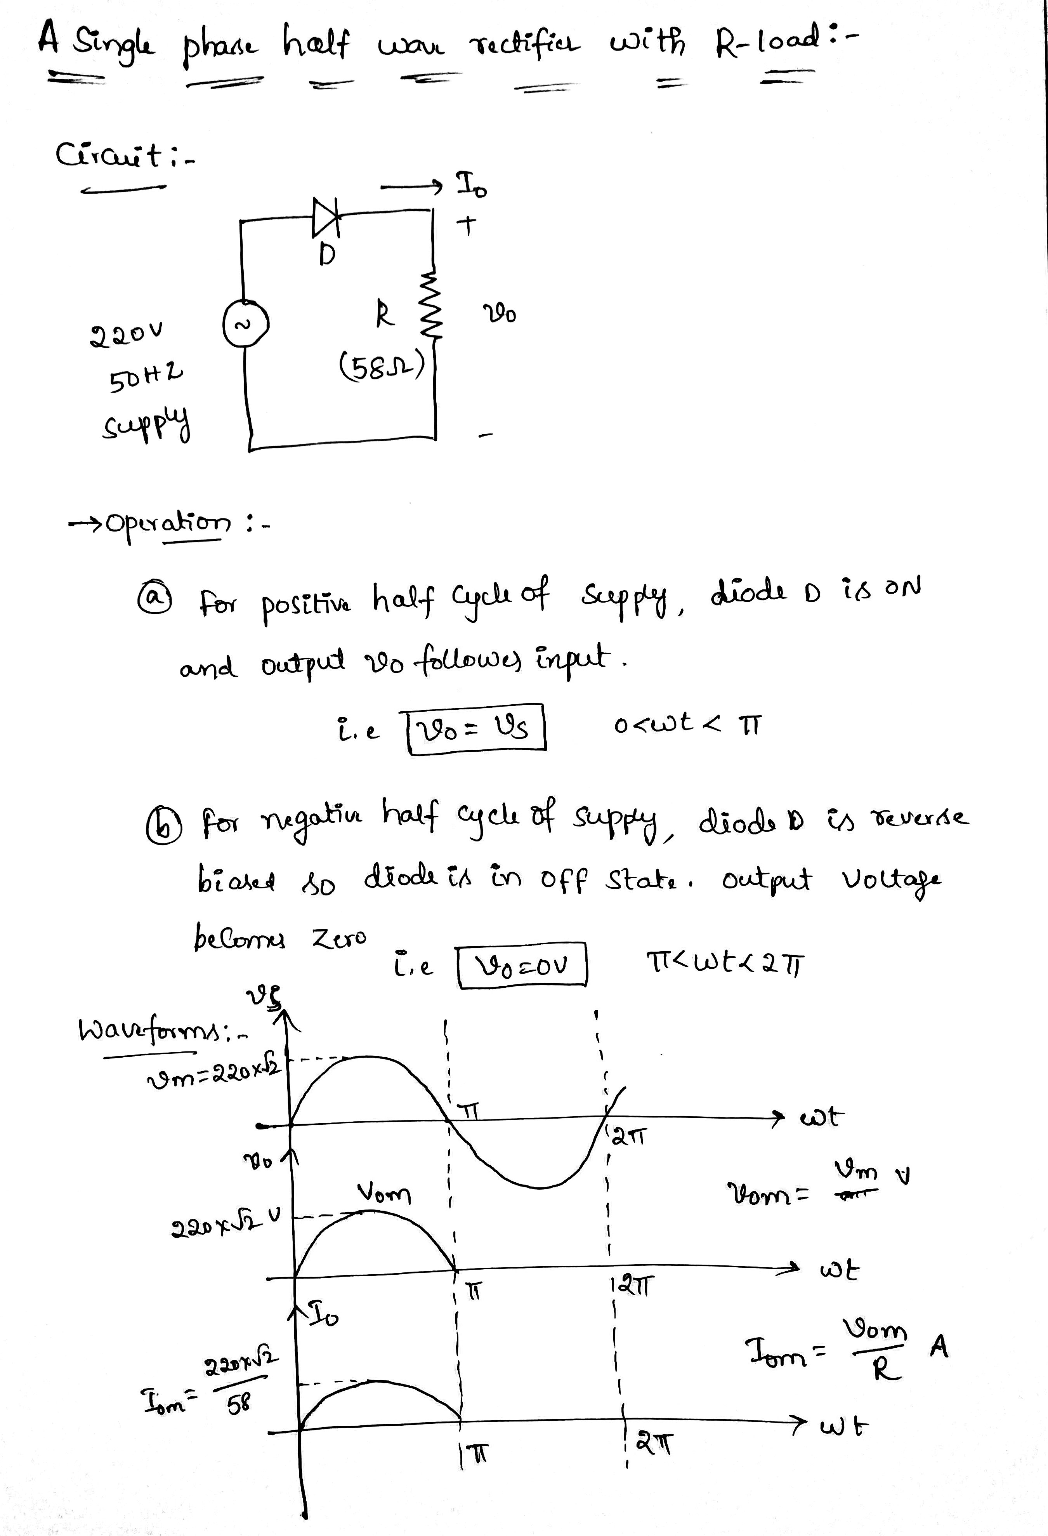 A Single phase half wave rectifier with R-load :-
Circuit :-
→ I₀
+
D
R
v₀
220V
(58Ω)
50HZ
supply
-
→ Operation :-
ⓐ For positive half cycle of supply, diode D is ON
and output v₀ followes input.
i.e v₀ = vs 0<wt< π
ⓑ For negative half cycle of supply, diode D is reverse
biased so diode is in off state. output voltage
becomes zero
i.e v₀=0V π<wt<2π
vs
Waveforms :-
vm=220x√2
π
wt
2π
v₀
Vom
vom = vm v
220x√2 V
π
2π
wt
I₀
Iom = 220x√2/58
Iom = vom/R A
π
2π
wt